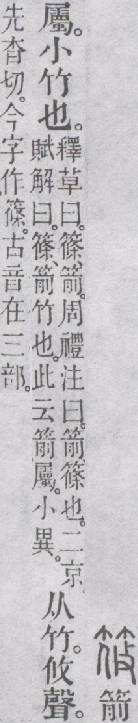 筱箭
屬。小竹也。釋草曰。篠、箭。周禮注曰。箭、篠也。二京
賦解曰。篠、箭竹也。此云箭屬。小異。
从竹。攸聲。
先杳切。今字作篠。古音在三部。